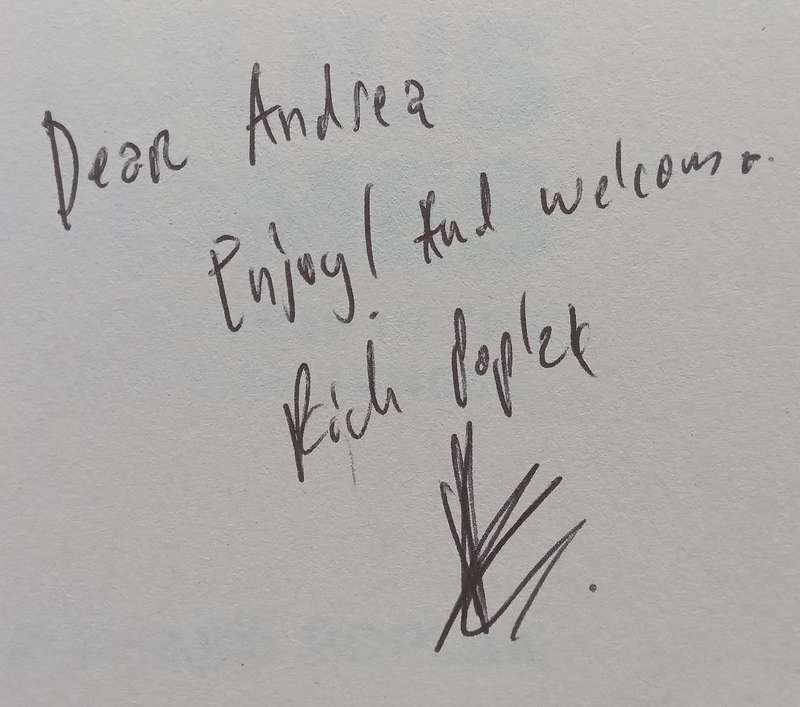 Dear Andrea
Enjoy! And welcome.
Rich Poplak